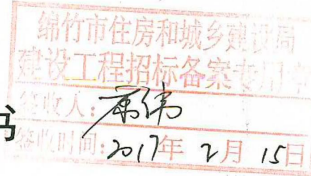 绵竹市住房和城乡建设局
建设工程招标备案专用章
签收人：
书
签收时间：2017年 2月 15日